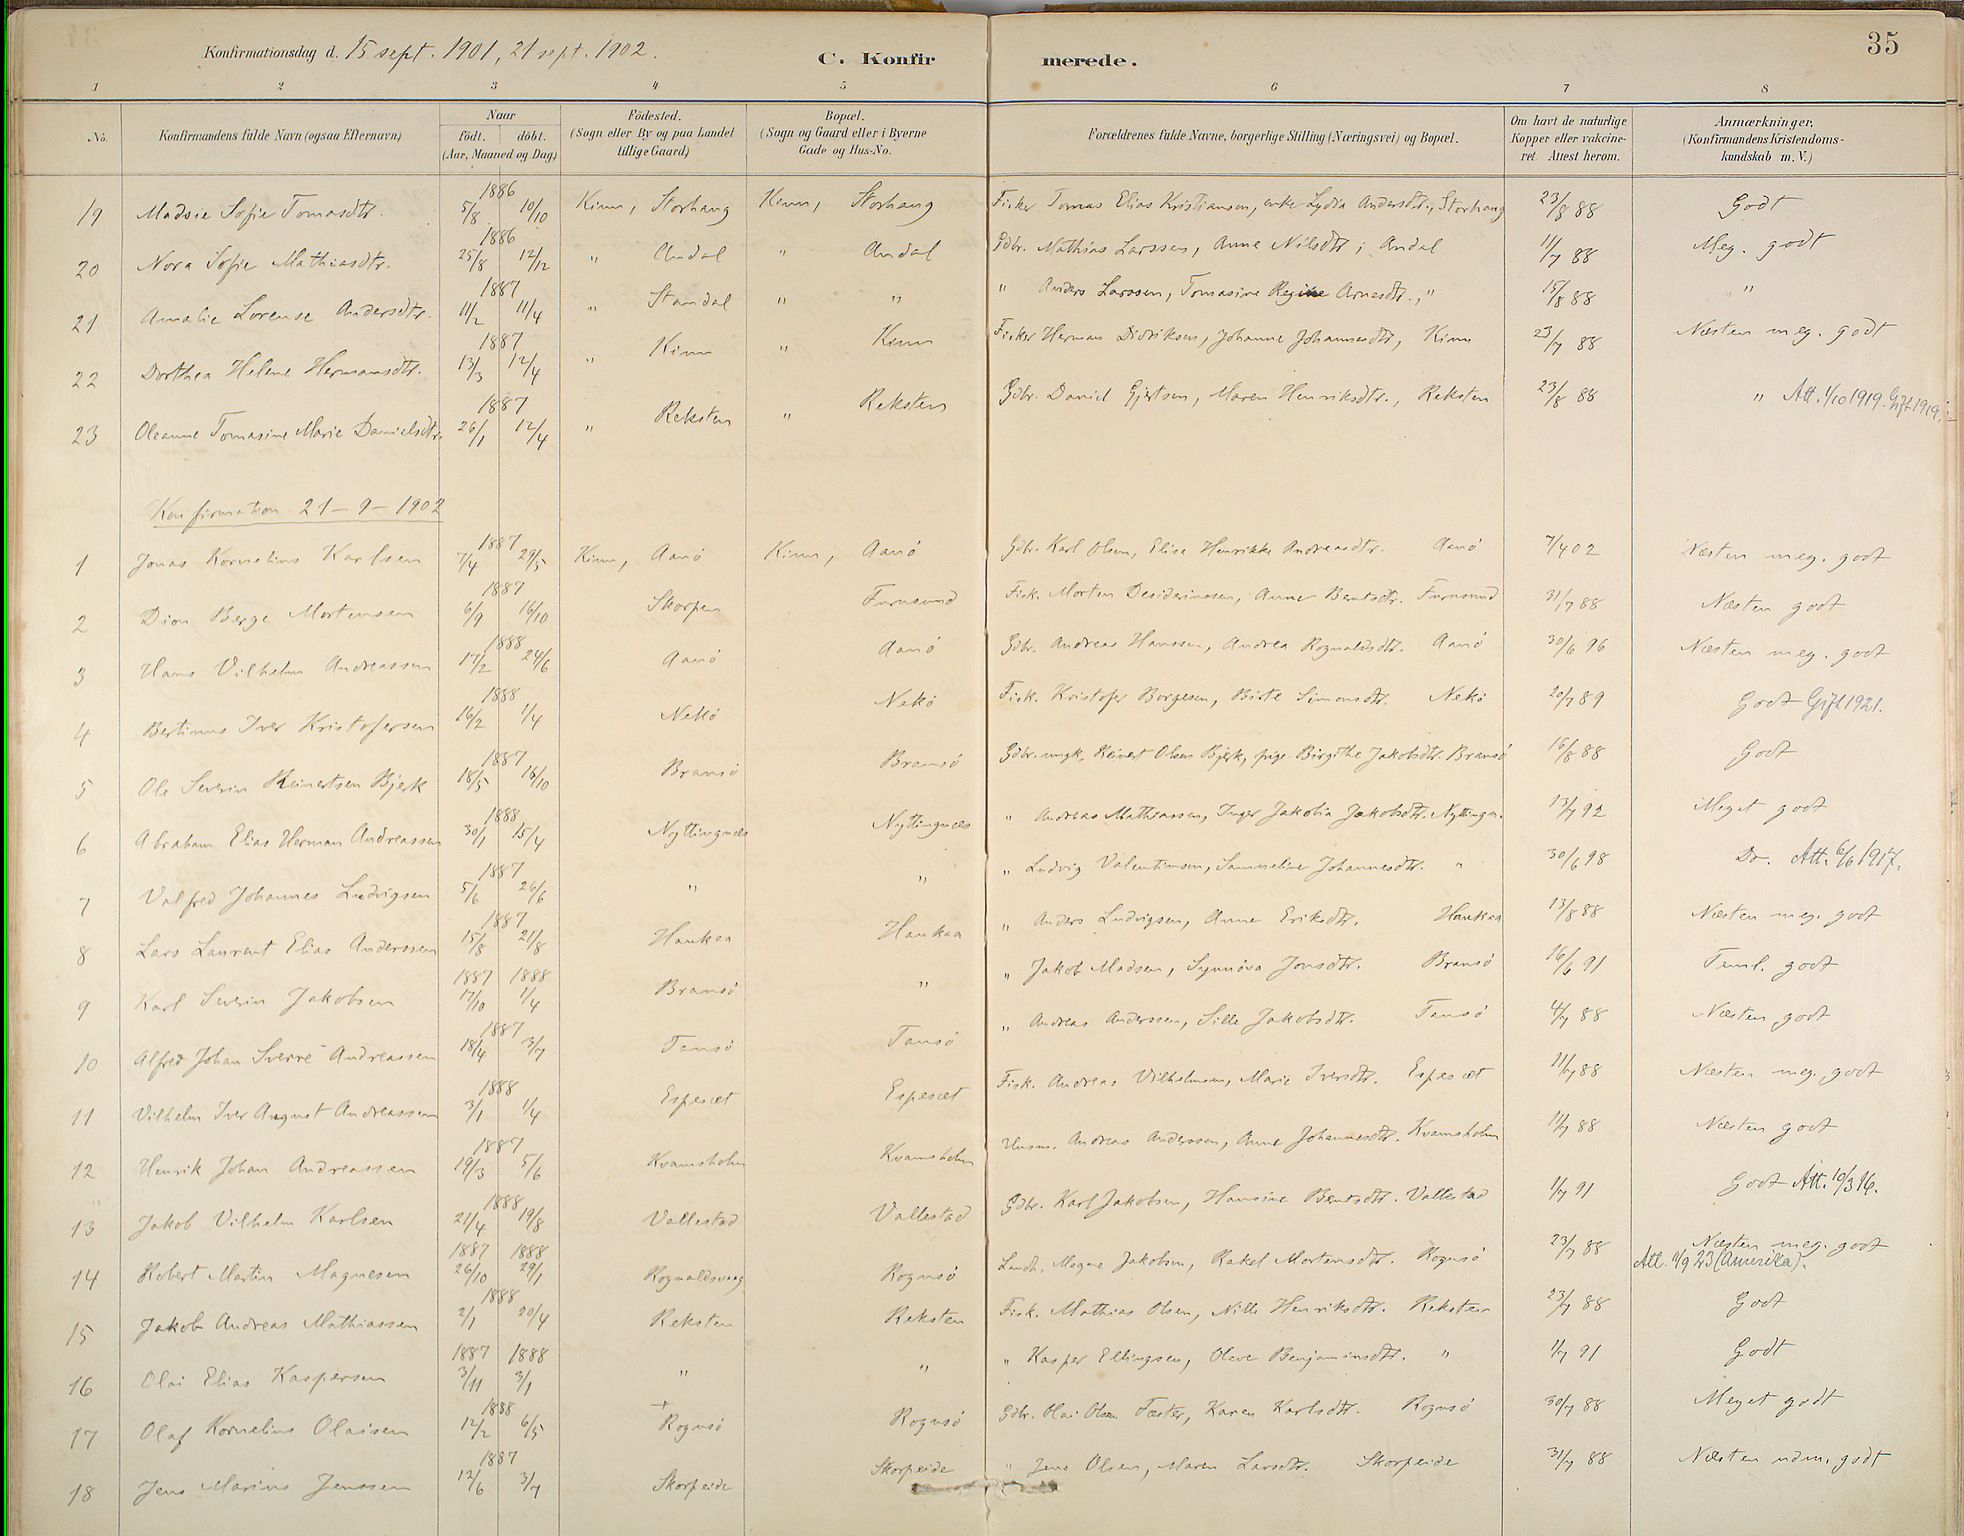 35
Konfirmationsdag d. 15 sept. 1901, 21 sept. 1902.
C. Konfirmerede.
1 2 3 4 5 6 7 8
No. Konfirmandens fulde Navn (ogsaa Efternavn) Naar födt. döbt. (Aar, Maaned og Dag) Födested. (Sogn eller By og paa Landet tillige Gaard) Bopæl. (Sogn og Gaard eller i Byerne Gade og Hus-No. Forældrenes fulde Navne, borgerlige Stilling (Næringsvei) og Bopæl. Om havt de naturlige Kopper eller vakcineret. Attest herom. Anmærkninger, (Konfirmandens Kristendomskundskab m. V.)
19 Madsie Sofie Tomasdtr. 1886 5/8 10/10 Kinn, Storhaug Kinn, Storhaug Fisker Tomas Elias Kristiansen, enke Lydia Andersdtr., Storhaug 23/8 88 Godt
20 Nora Sofie Mathiasdtr. 1886 25/8 12/12 " Andal " Andal Gdbr. Mathias Larssen, Anne Nilsdtr i Andal 11/7 88 Meg. godt
21 Amalie Lorense Andersdtr. 1887 11/2 11/4 " Standal " " " Anders Larssen, Tomasine Regine Arnesdtr., " 15/8 88 "
22 Dorthea Helene Hermansdtr. 1887 13/3 12/4 " Kinn " Kinn Fisker Herman Didriksen, Johanne Johannesdtr, Kinn 23/7 88 Næsten meg. godt
23 Oleanne Tomasine Marie Danielsdtr. 1887 26/1 12/4 " Reksten " Reksten Gdbr. Daniel Gjertsen, Maren Henriksdtr., Reksten 23/8 88 " Att. 1/10 1919. Gift 1919.
Konfirmation 21-9-1902
1 Jonas Kornelius Karlsen 1887 7/4 29/5 Kinn, Aanö Kinn, Aanö Gdbr. Karl Olsen, Elise Henrikke Andreasdtr. Aanö 7/4 02 Næsten meg. godt
2 Dion Berge Mortensen 1887 6/9 16/10 Skorpen Furusund Fisk. Morten Desideriussen, Anne Bentsdtr. Furusund 31/7 88 Næsten godt
3 Hans Vilhelm Andreassen 1888 17/2 24/6 Aanö Aanö Gdbr. Andreas Hanssen, Andrea Rognaldsdtr. Aanö 30/6 96 Næsten meg. godt
4 Bertinus Iver Kristofersen 1888 16/2 1/4 Nekö Nekö Fisk. Kristofer Borgesen, Birte Simonsdtr. Nekö 20/7 89 Godt Gift 1921.
5 Ole Severin Reinertsen Bjerk 1887 18/5 16/10 Bransö Bransö Gdbr. ungk. Reinert Olsen Bjerk, pige Birgithe Jakobsdtr. Bransö 16/8 88 Godt
6 Abraham Elias Herman Andreassen 1888 30/1 15/4 Nyttingnæs Nyttingnæs " Andreas Mathiassen, Inger Jakobia Jakobsdtr. Nyttingn. 13/7 92 Meget godt
7 Valfred Johannes Ludvigsen 1887 5/6 26/6 " " " Ludvig Valentinsen, Samueline Johannesdtr. " 30/6 98 Do. Att. 6/6 1917.
8 Lars Laurent Elias Anderssen 1887 15/8 21/8 Haukaa Haukaa " Anders Ludvigsen, Anne Eriksdtr. Haukaa 13/8 88 Næsten meg. godt
9 Karl Severin Jakobsen 1887 17/10 1888 1/4 Bransö " " Jakob Madsen, Synnöva Jonsdtr. Bransö 16/6 91 Teml. godt
10 Alfred Johan Sverre Andreassen 1887 18/4 3/7 Tansö Tansö " Andreas Anderssen, Sille Jakobsdtr. Tansö 4/7 88 Næsten godt
11 Vilhelm Iver August Andreassen 1888 3/1 1/4 Espesæt Espesæt Fisk. Andreas Vilhelmsen, Marie Iversdtr. Espesæt 11/7 88 Næsten meg. godt
12 Henrik Johan Andreassen 1887 19/3 5/6 Kvamsholm Kvamsholm Husm. Andreas Anderssen, Anne Johannesdtr. Kvamsholm 11/7 88 Næsten godt
13 Jakob Vilhelm Karlsen 1888 21/4 19/8 Vallestad Vallestad Gdbr. Karl Jakobsen, Hansine Bentsdtr. Vallestad 1/7 91 Godt Att. 10/3 16.
14 Robert Martin Magnesen 1887 26/10 1888 29/1 Rognaldsvaag Rognsö Landh. Magne Jakobsen, Rakel Mortensdtr. Rognsö 23/7 88 Næsten meg. godt
Att. 4/9 23 (Amerika).
15 Jakob Andreas Mathiassen 1888 2/1 20/4 Reksten Reksten Fisk. Mathias Olsen, Nille Henriksdtr. Reksten 23/7 88 Godt
16 Olai Elias Kaspersen 1887 3/11 1888 3/1 " " " Kasper Ellingsen, Oleve Benjaminsdtr. " 1/7 91 Godt
17 Olaf Kornelius Olaisen 1888 12/2 6/5 + Rognsö Rognsö Gdbr. Olai Olsen Fæster, Karen Karlsdtr. Rognsö 30/7 88 Meget godt
18 Jens Marius Jenssen 1887 12/6 3/7 Skorpeide Skorpeide " Jens Olsen, Maren Larsdtr. Skorpeide 31/7 88 Næsten udm. godt